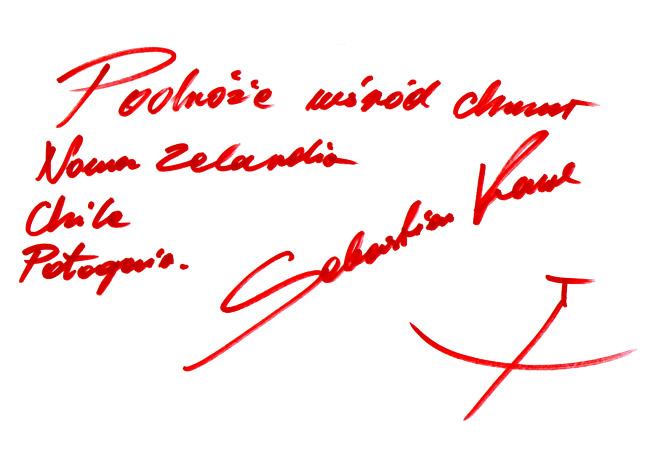 Podróże wśród chmur
Nowa Zelandia
Chile
Patagonia.
Sebastian Kawa